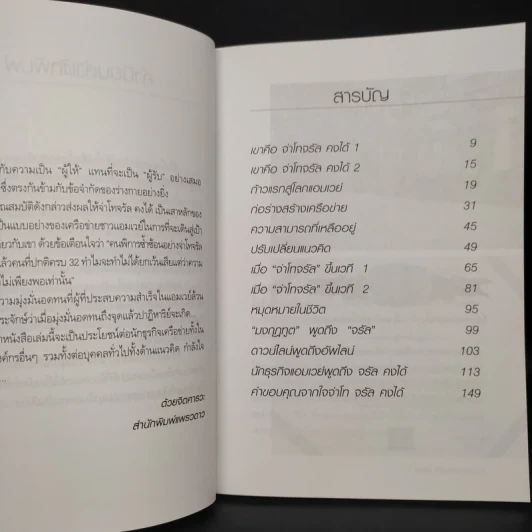 กับความเป็น "ผู้ให้" แทนที่จะเป็น "ผู้รับ" อย่างเสมอ
ซึ่งตรงกันข้ามกับข้อจำกัดของร่างกายอย่างยิ่ง
คุณสมบัติดังกล่าวส่งผลให้จ่าโทจรัล คงได้ เป็นเสาหลักของ
เป็นแบบอย่างของเครือข่ายชาวแอมเวย์ในการที่จะเดินสู่เป้า
ยวกับเขา ด้วยข้อเตือนใจว่า "คนพิการซ้ำซ้อนอย่างจ่าโทจรัล
แล้วคนที่ปกติครบ 32 ทำไมจะทำไม่ได้ยกเว้นเสียแต่ว่าความ
ไม่เพียงพอเท่านั้น"
ความมุ่งมั่นอดทนที่ผู้ที่ประสบความสำเร็จในแอมเวย์ล้วน
ระจักษ์ว่าเมื่อมุ่งมั่นอดทนถึงจุดแล้วปาฏิหาริย์จะเกิด...
หนังสือเล่มนี้จะเป็นประโยชน์ต่อนักธุรกิจเครือข่ายทั้งใน
งค์กรอื่นๆ รวมทั้งต่อบุคคลทั่วไปทั้งด้านแนวคิด กำลังใจ
...
ด้วยจิตคารวะ
สำนักพิมพ์แพรวดาว
สารบัญ
เขาคือ จ่าโทจรัล คงได้ 1 9
เขาคือ จ่าโทจรัล คงได้ 2 15
ก้าวแรกสู่โลกแอมเวย์ 19
ก่อร่างสร้างเครือข่าย 31
ความสามารถที่เหลืออยู่ 45
ปรับเปลี่ยนแนวคิด 49
เมื่อ "จ่าโทจรัล" ขึ้นเวที 1 65
เมื่อ "จ่าโทจรัล" ขึ้นเวที 2 81
หมุดหมายในชีวิต 95
"มงกุฎทูต" พูดถึง "จรัล" 99
ดาวน์ไลน์พูดถึงอัพไลน์ 103
นักธุรกิจแอมเวย์พูดถึง จรัล คงได้ 113
คำขอบคุณจากใจจ่าโท จรัล คงได้ 149